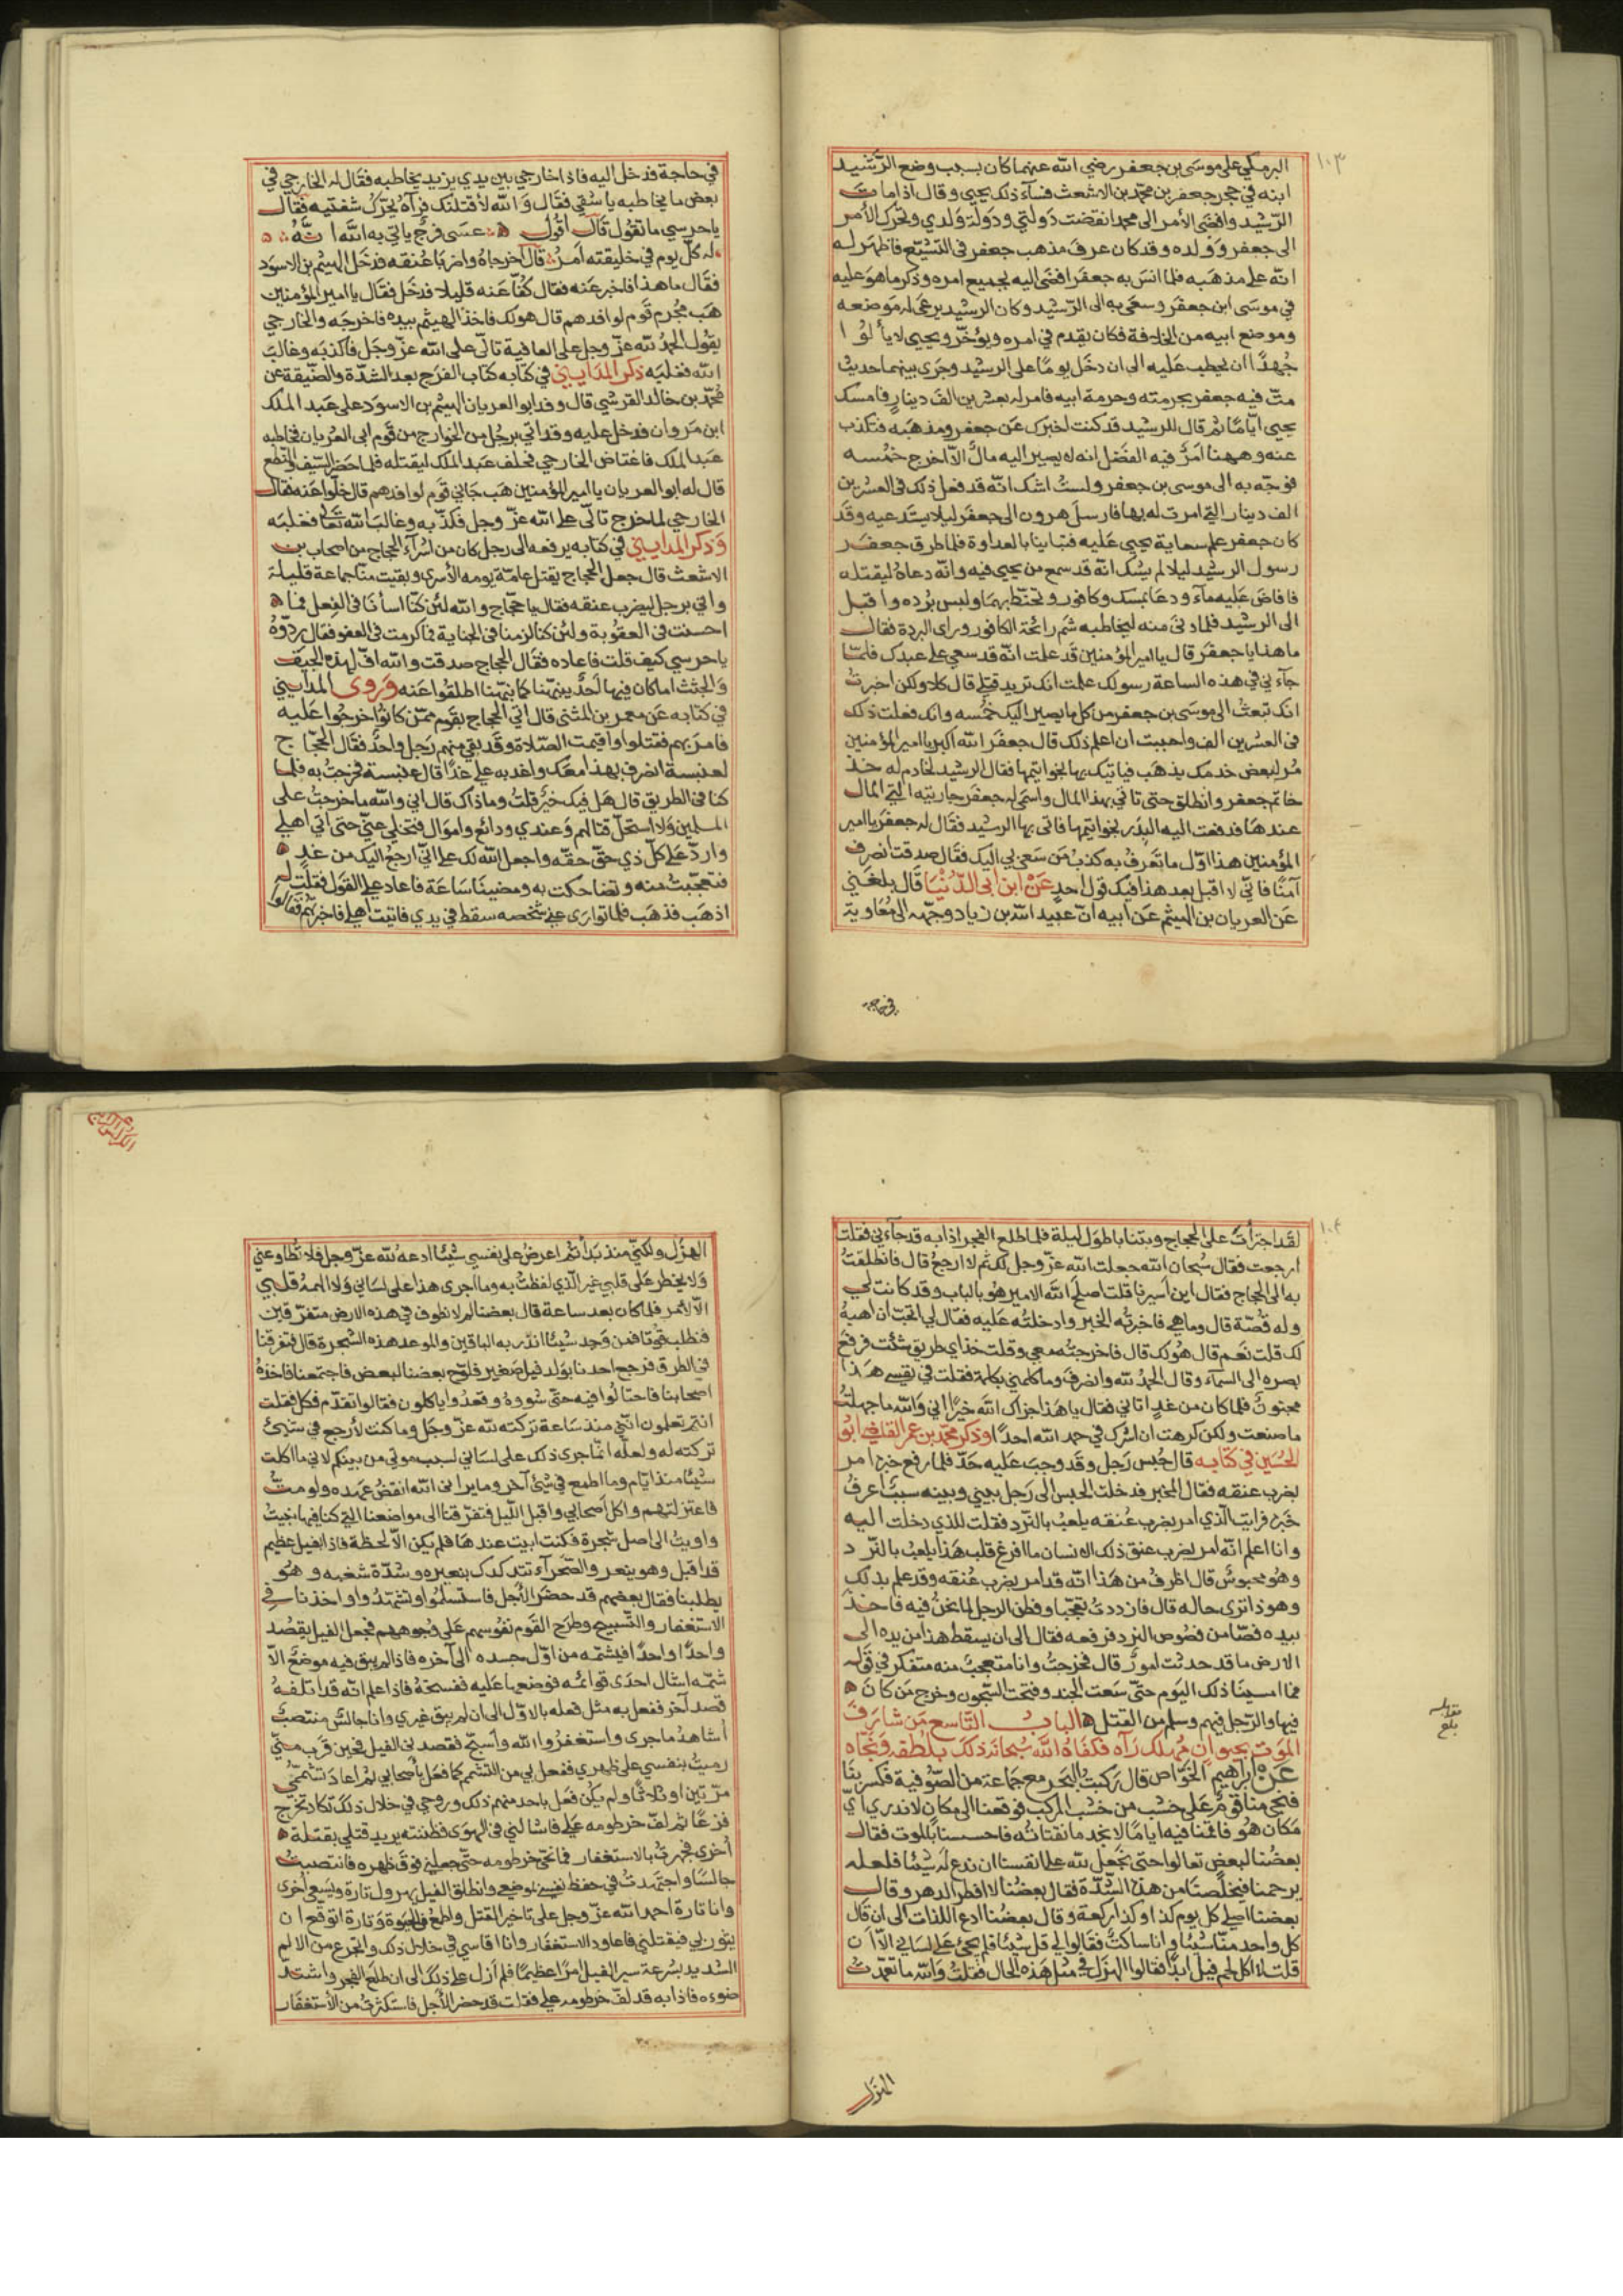 ١٠٣
البرمكي على موسى بن جعفر رضي الله عنهما كان بسبب وضع الرشيد
ابنه في حجر جعفر بن محمد بن الاشعث فسآء ذلك يحيى وقال اذا مات
الرشيد وافضى الأمر الى محمد انقضت دولتي ودولة ولدي وتحرك الأمر
الى جعفر وولده وقد كان عرف مذهب جعفر في التشيع فاظهر له
انه على مذهبه فلما انس به جعفر افضى اليه بجميع امره وذكر ما هو عليه
في موسى ابن جعفر وسعى به الى الرشيد وكان الرشيد يرعى له موضعه
وموضع ابيه من الخلافة فكان يقدم في امره ويؤخر ويحيى لا يألوا
جهدًا ان يحطب عليه الى ان دخل يومًا على الرشيد وجرى بينهما حديث
متّ فيه جعفر بحرمته وحرمة ابيه فامر له بعشرين الف دينار فامسك
يحيى ايّامًا ثم قال للرشيد قد كنت اخبرك عن جعفر ومذهبه فتكذب
عنه وههنا امرٌ فيه الفصل انه لا يصير اليه مالٌ الا اخرج خمسه
فوجّه به الى موسى بن جعفر ولستُ اشك انه قد فعل ذلك في العشرين
الف دينار التي امرت له بها فارسل هرون الى جعفر ليلا يستدعيه وقد
كان جعفر علم سعاية يحيى عليه فتباينا بالعداوة فلما طرق جعفر
رسول الرشيد ليلا لم يشك انه قد سمع من يحيى فيه وانه دعاه ليقتله
فافاض عليه مآء ودعا بمسك وكافور وتحنط بهما ولبس برده واقبل
الى الرشيد فلما دنى منه ليخاطبه شم رائحة الكافور وراى البردة فقال
ما هذا يا جعفر قال يا امير المؤمنين قد علمت انه قد سعي على عبدك فلمّا
جآءني في هذه الساعة رسولك علمت انك تريد قتلي قال كلا ولكن اخبرت
انك تبعث الى موسى بن جعفر من كل ما يصير اليك خمسه وانك فعلت ذلك
في العشرين الف واحببت ان اعلم ذلك قال جعفر الله اكبر يا امير المؤمنين
مُر لبعض خدمك يذهب فياتيك بها بخواتيمها فقال الرشيد لخادم له خذ
خاتم جعفر وانطلق حتى تاتي بهذا المال واسمى له جعفر جاريته التي المال
عندها فدفعت اليه البدر بخواتيمها فاتى بها الرشيد فقال له جعفر يا امير
المؤمنين هذا اوّل ما تعرف به كذب من سعى بي اليك فقال صدقت انصرف
آمنًا فاني لا اقبل بعد هذا فيك قول احدٍ عن ابن ابي الدّنيا قال بلغني
عن العريان بن الهيثم عن ابيه ان عبيد الله بن زياد وجّهه الى معاوية
في حاجة
في حاجة فدخل اليه فاذا خارجي بين يدي يزيد يخاطبه فقال له الخارجي في
بعض ما يخاطبه يا شقي فقال والله لاقتلنك فرآه يحرّك شفتيه فقال
يا حرسي ما تقول قال اقول عسى فرج ياتي به الله انّهُ
له كلّ يوم في خليقته أمرُ قال اخرجاه واضربا عنقه فدخل الهيثم بن الاسود
فقال ما هذا فاخبر عنه فقال كفّا عنه قليلا فدخل فقال يا امير المؤمنين
هب مجرم قوم لوافدهم قال هو لك فاخذ الهيثم بيده فاخرجه والخارجي
يقول الحمد لله عزّ وجل على العافية تالّى على الله عزّ وجل فاكذبه وغالب
الله فغلبه ذكر المدايني في كتابه كتاب الفرج بعد الشدّة والضيقة عن
محمّد بن خالد القرشي قال وفد ابو العريان الهيثم بن الاسود على عبد الملك
ابن مروان فدخل عليه وقد اتي برجل من الخوارج من قوم ابي العريان فخاطبه
عبد الملك فاغتاض الخارجي فحلف عبد الملك ليقتله فلما حضر السيف والنطع
قال له ابو العريان يا امير المؤمنين هب جاني قوم لوافدهم قال خلّوا عنه فقال
الخارجي لما خرج تالّى على الله عزّ وجل فكذّبه وغالب الله تعالى فغلبه
وذكر المدايني في كتابه يرفعه الى رجل كان من اسرآء الحجاج من اصحاب بن
الاشعث قال جعل الحجاج يقتل عامّة يومه الأسرى وبقيت منّا جماعة قليلة
واتي برجل ليضرب عنقه فقال يا حجّاج والله لئن كنّا اسأنا في الفعل فما
احسنت في العقوبة ولئن كنا لزمنا في الجناية فما كرمت في العفو فقال ردّوهُ
يا حرسي كيف قلت فاعاده فقال الحجاج صدقت والله افّ لهذه الجيف
والجثث اما كان فيها احدٌ ينبّهنا كما نبّهنا اطلقوا عنه وروى المدايني
في كتابه عن معمر بن المثنى قال اتي الحجاج بقوم ممّن كانوا خرجوا عليه
فامر بهم فقتلوا واقيمت الصلاة وقد بقي منهم رجل واحدٌ فقال الحجّاج
لعنبسة انصرف بهذا معك واغد به علي غدًا قال عنبسة فخرجتُ به فلمّا
كنا في الطريق قال هل فيك خيرٌ قلتُ وما ذاك قال اني والله ما خرجتُ على
المسلمين ولا استحلّ قتالهم وعندي ودائع واموال فتخلي عنّي حتى آتي اهلي
واردّ على كلّ ذي حقّ حقّه واجعل الله لك علي انّي ارجع اليك من غدٍ
فتعجّبت منه وتضاحكت به ومضينا ساعة فاعاد علي القول فقلت له
اذهب فذهب فلما توارى عني شخصه سقط في يدي فاتيت اهلي فاخبرتهم فقالوا
١٠٤
لقد اجترأت على الحجاج وبتنا باطول ليلة فلما طلع الفجر اذا به قد جآءني فقلت
ارجعت فقال سبحان الله جعلت الله عزّ وجل لك ثم لا ارجع قال فانطلقتُ
به الى الحجاج فقال اين اسيرنا قلت اصلح الله الامير هو بالباب وقد كانت لي
وله قصّة قال وما هي فاخبرته الخبر وادخلته عليه فقال لي اتحبّ ان اهبهُ
لك قلت نعم قال هو لك قال فاخرجته معي وقلت خذ اي طريق شئت فرفع
بصره الى السمآء وقال الحمد لله وانصرف وما كلمني بكلمة فقلت في نفسي هذا
مجنونٌ فلما كان من غدٍ اتاني فقال يا هذا جزاك الله خيرًا اني والله ما جهلتُ
ما صنعت ولكن كرهت ان اشرك في حمد الله احدًا وذكر محمد بن عمر القاضي ابو
الحسين في كتابه قال حُبس رجل وقد وجب عليه حدّ فلما رفع خبره امر
بضرب عنقه فقال المخبر فدخلت الحبس الى رجل بيني وبينه سببٌ اعرفُ
خبره فرايت الذي امر بضرب عُنقه يلعبُ بالنّرد فقلت للذي دخلت اليه
وانا اعلم انه امر بضرب عنق ذلك الانسان ما افرغ قلب هذا يلعبُ بالنّرد
وهو محبوسٌ قال اظرفُ من هذا انه قد امر بضرب عُنقه وقد علم بذلك
وهو ذا ترى حاله قال فازددتُ تعجّبا وفطن الرجل لما نحنُ فيه فاخذ
بيده فصّا من فصوص النرد فرفعه فقال الى ان يسقط هذا من يده الى
الارض ما قد حدثت امورٌ قال فخرجتُ وانا متعجبٌ منه متفكر في قوله
فما امسينا ذلك اليوم حتّى شعت الجند وفتحت السّجون وخرج من كان
فيها والرّجل فيهم وسلم من القتل الباب التّاسع من شارف
الموت بحيوان مُهلك رآه فكفاه الله سبحانه ذلك بلطفه ونجّاه
عن ابراهيم الخوّاص قال ركبتُ البحر مع جماعة من الصّوفية فكسر بنا
فنجي منا قومٌ على خشب من خشب المركب فوقعنا الى مكان لا ندري ايّ
مكان هو فاقمنا فيه ايامًا لا نجد ما نقتاته فاحسسنا بالموت فقال
بعضُنا لبعض تعالوا حتى نجعل لله على انفسنا ان ندع له شيئًا فلعله
يرحمنا فيخلّصنا من هذه الشدّة فقال بعضُنا لا افطر الدهر وقال
بعضنا اصلي كل يوم كذا وكذا ركعة وقال بعضُنا ادع اللذات الى ان قال
كل واحد منّا شيئًا وانا ساكتٌ فقالوا لي قل شيئا فلم يجئ على لساني الّا ان
قلت لا اكل لحم فيل ابدًا فقالوا الهزل في مثل هذه الحال فقلتُ والله ما تعمّدتُ
الهزل
مقابله
بلغ
الهزل ولكنّي منذ بدأتُم اعرضُ على نفسي شيئًا ادعهُ لله عزّ وجل فلا تطاوعني
ولا يخطر على قلبي غير الّذي لفظتُ به وما اجرى هذا على لساني ولا الهمهُ قلبي
الّا لأمر فلما كان بعد ساعة قال بعضنا لم لا نطوف في هذه الارض متفرّقين
فنطلب قوتا فمن وجد شيئًا انذر به الباقين والموعد هذه الشجرة قال فتفرقنا
في الطرق فرجع احدنا بولد فيل صغير فلوّح بعضنا لبعض فاجتمعنا فاخذهُ
اصحابنا فاحتالوا فيه حتّى شووه وقعدوا ياكلون فقالوا تقدّم فكل فقلت
انتم تعلمون انّني منذ ساعة تركته لله عزّ وجل وما كنت لأرجع في شيئ
تركته له ولعلّه انّما جرى ذلك على لساني لسبب موتي من بينكم لاني ما اكلت
شيئًا منذ ايّام وما اطمع في شئ آخر وما يراني الله انقضُ عهده ولو متُّ
فاعتزلتهم واكل اصحابي واقبل اللّيل فتفرّقنا الى مواضعنا التي كنا فيها نبيتُ
واويتُ الى اصل شجرة فكنت ابيت عندها فلم يكن الّا لحظة فاذا بفيل عظيم
قد اقبل وهو ينعر والصحرآء تتدكدك بنعيره وشدّة شغبه وهو
يطلبنا فقال بعضهم قد حضر الأجل فاستسلموا وتشهّدوا واخذنا في
الاستغفار والتّسبيح وطرح القوم نفوسهم على وجوههم فجعل الفيل يقصد
واحدًا واحدًا فيشمّه من اوّل جسده الى آخره فاذا لم يبق فيه موضعٌ الّا
شمّه اشال احدى قوائمه فوضعها عليه ففسخهُ فاذا علم انه قد اتلفهُ
قصد آخر ففعل به مثل فعله بالاوّل الى ان لم يبق غيري وانا جالسٌ منتصبٌ
أشاهدُ ما جرى واستغفر الله وأسبّح فقصدني الفيل فحين قرب منّي
رميتُ بنفسي على ظهري ففعل بي من التشمم كما فعل بأصحابي ثم اعاد تشمّمي
مرّتين او ثلاثًا ولم يكن فعل باحد منهم ذلك وروحي في خلال ذلك تكاد تخرج
فزعًا ثم لفّ خرطومه عليّ فاشالني في الهوى فظننته يريد قتلي بقتلة
أُخرى فجهرتُ بالاستغفار فما نحّى خرطومه حتّى جعلني فوق ظهره فانتصبتُ
جالسًا واجتهدتُ في حفظ نفسي بموضعي وانطلق الفيل يهرول تارة ويسعى اخرى
وانا تارة احمد الله عزّ وجل على تاخير القتل واطمع في الحيوة وتارة اتوقّع ان
يثور بي فيقتلني فاعاود الاستغفار وانا اقاسي في خلال ذلك واتجرع من الالم
الشديد بسُرعة سير الفيل امرًا عظيمًا فلم ازل على ذلك الى ان طلع الفجر واشتد
ضوءه فاذا به قد لفّ خرطومه علي فقلت قد حضر الأجل فاستكثرتُ من الأستغفار